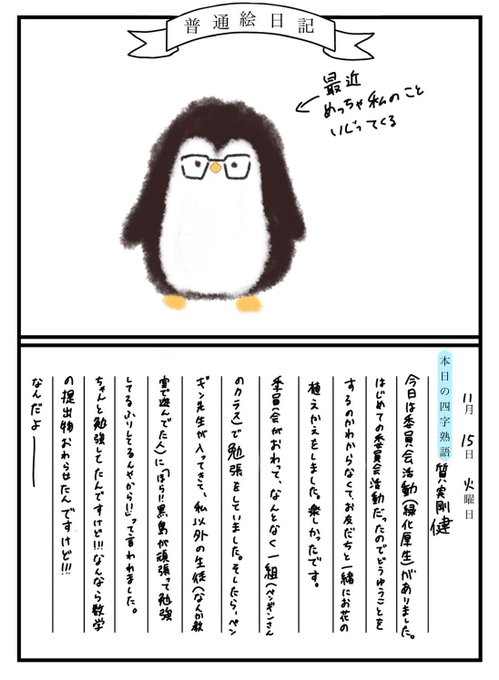 普通絵日記
最近
めっちゃ私のこと
いじってくる
11月 15日 火曜日
本日の四字熟語 質実剛健
今日は委員会活動(緑化厚生)がありました。
はじめての委員会活動だったのでどうゆうことを
するのかわからなくて、お友だちと一緒にお花の
植えかえをしました。楽しかったです。
委員会がおわって、なんとなく一組(ペンギンさん
のクラス)で勉強をしていました。そしたら、ペン
ギン先生が入ってきて、私以外の生徒(なんか教
室で遊んでた人)に「ほら!!黒島が頑張って勉強
してるふりしてるんやから!!」って言われました。
ちゃんと勉強してたんですけど!!!なんなら数学
の提出物おわらせたんですけど!!!
なんだよ———